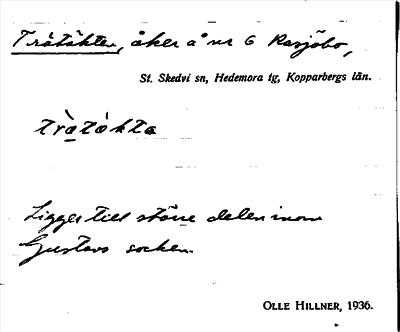 Tråtäkten, åker å nr 6 Rasjöbo,
St. Skedvi sn, Hedemora tg, Kopparbergs län.
tràtákta
Ligger till större delen inom
Gustavs socken.
OLLE HILLNER, 1936.